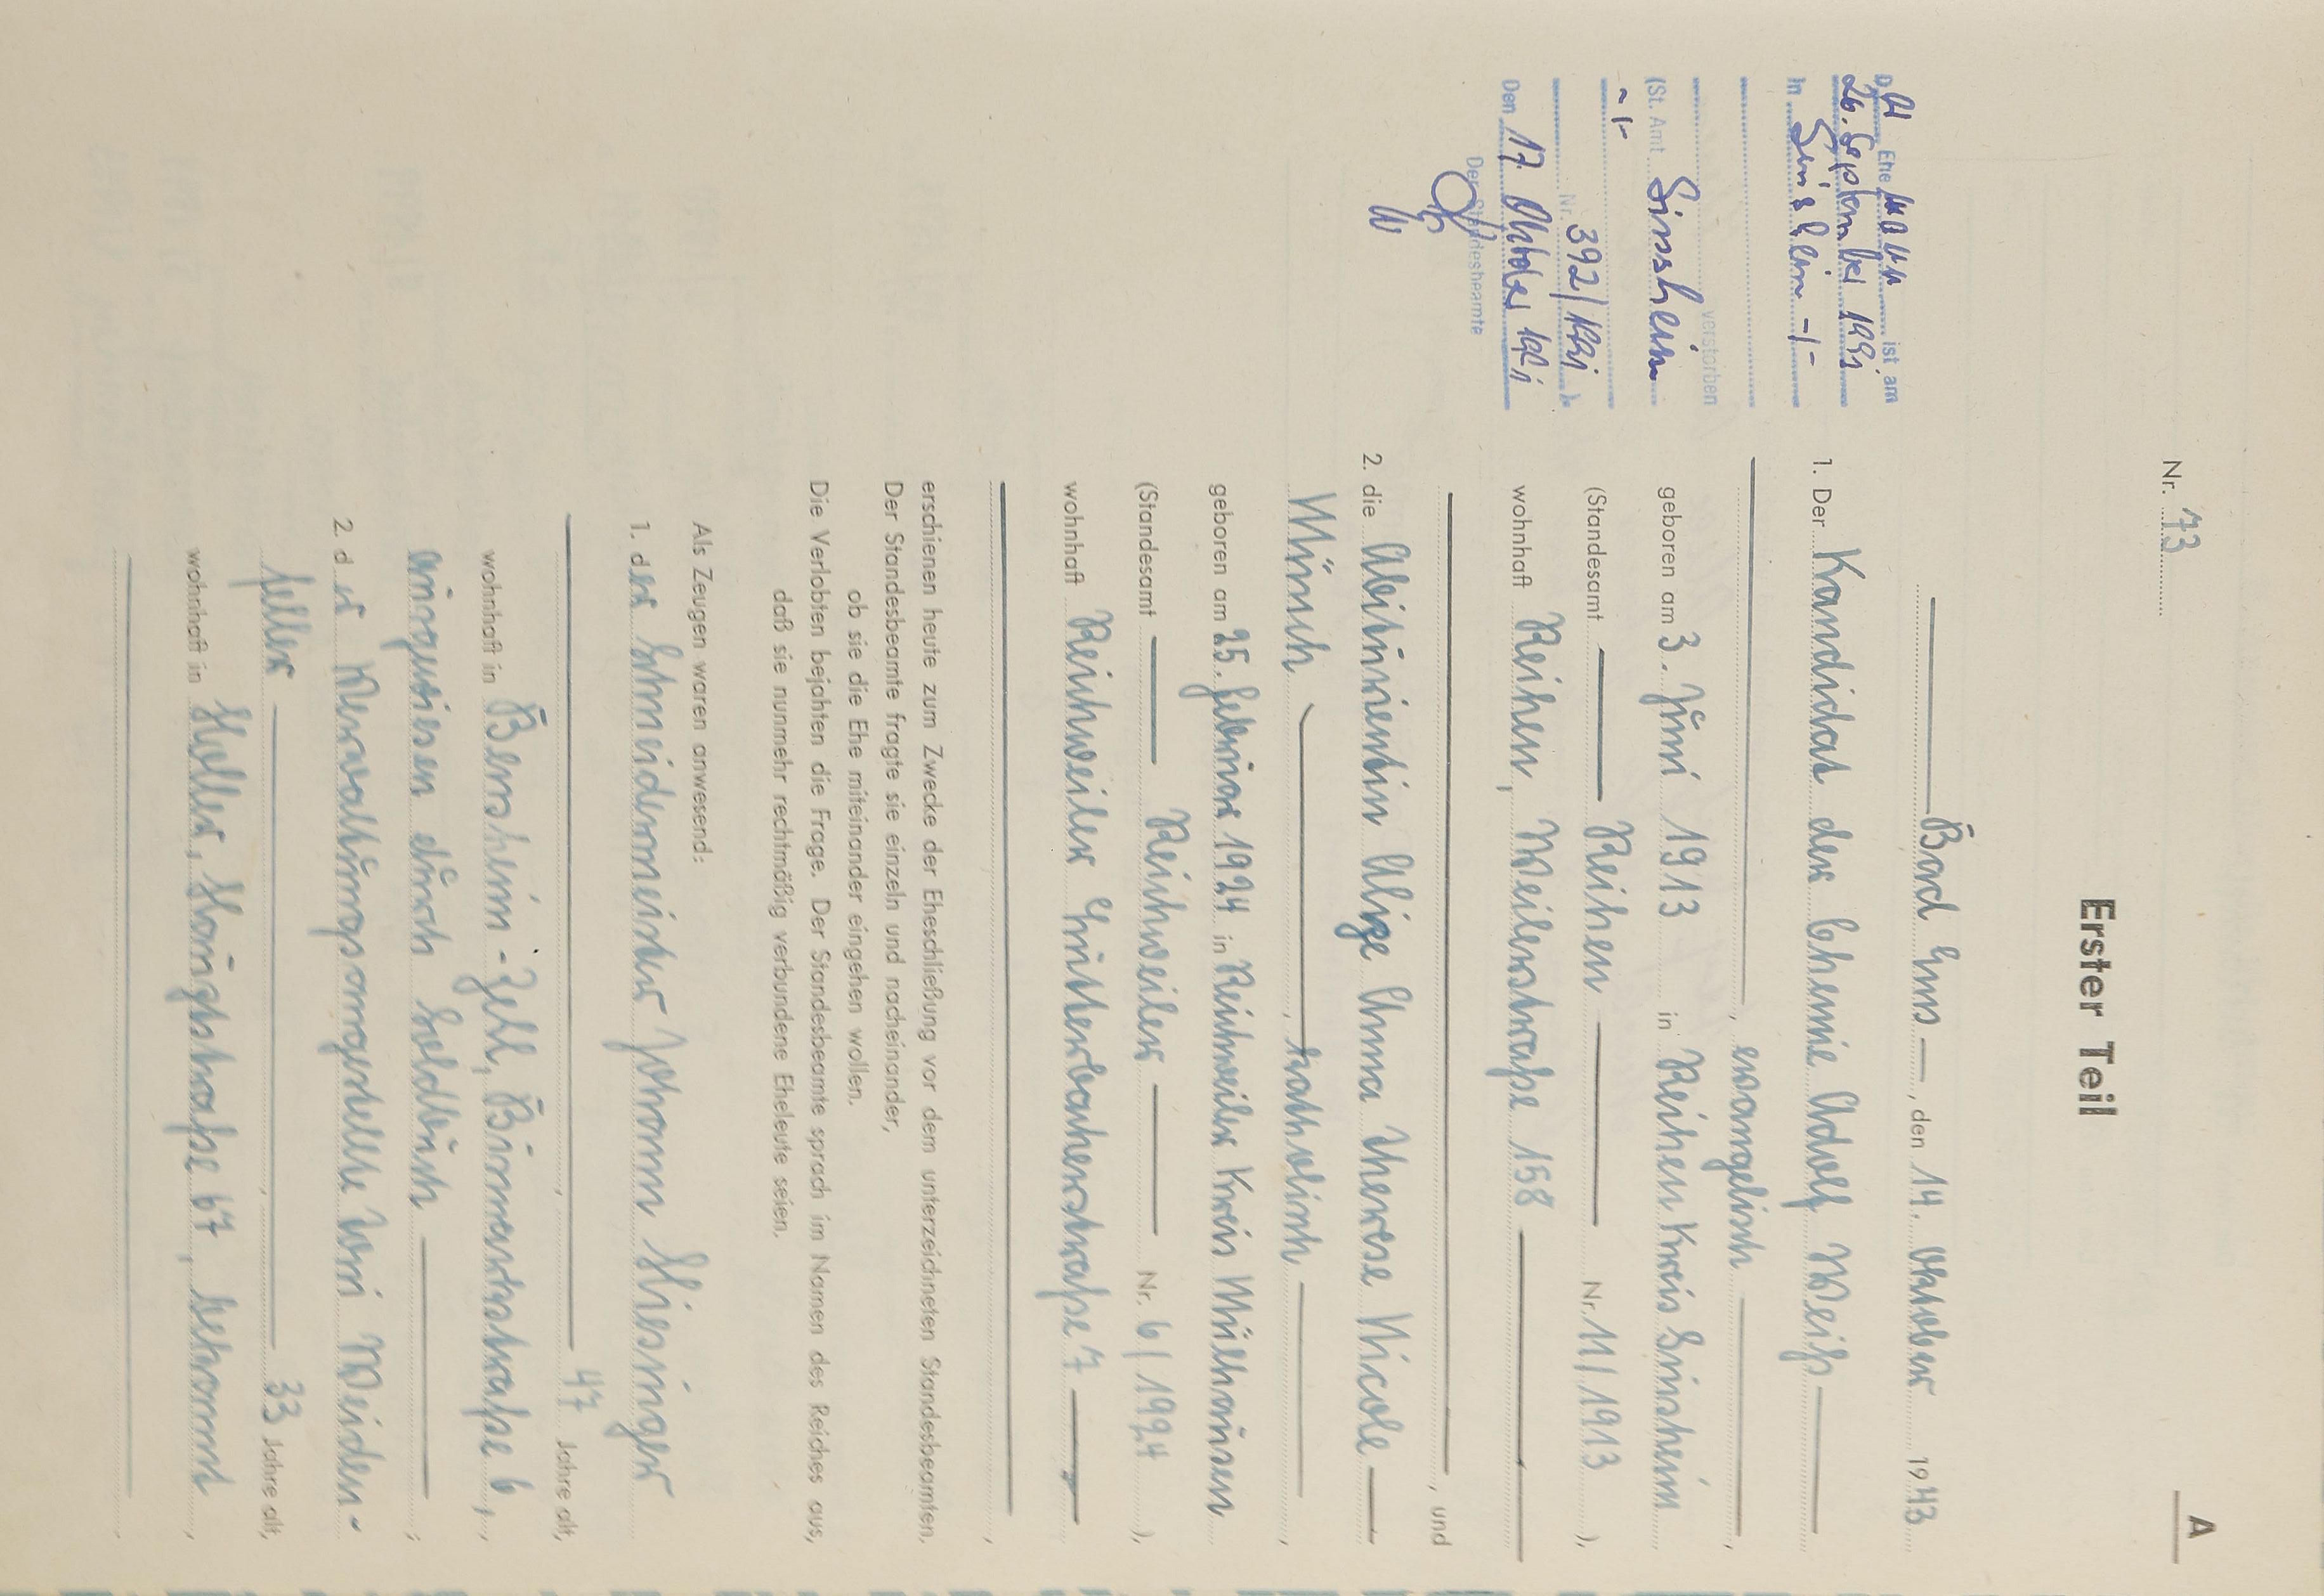 A
Erster Teil
Nr. 73
Bad Ems, den 14. Oktober 1943
1. Der Kandidat der Chemie Adolf Weiß
, evangelisch,
geboren am 3. Juni 1913 in Reihen Kreis Sinsheim
(Standesamt Reihen Nr. 11/1913),
wohnhaft Reihen, Weilerstraße 158
, und
2. die Abiturientin Alice Anna Therese Nicole
Münch, katholisch,
geboren am 25. Februar 1924 in Reichweiler Kreis Mülhausen
(Standesamt Reichweiler Nr. 6/1924),
wohnhaft Reichweiler Lutterbacherstraße 7
,
erschienen heute zum Zwecke der Eheschließung vor dem unterzeichneten Standesbeamten.
Der Standesbeamte fragte sie einzeln und nacheinander,
ob sie die Ehe miteinander eingehen wollen.
Die Verlobten bejahten die Frage. Der Standesbeamte sprach im Namen des Reiches aus,
daß sie nunmehr rechtmäßig verbundene Eheleute seien.
Als Zeugen waren anwesend:
1. der Schneidermeister Johann Kiesinger
, 47 Jahre alt,
wohnhaft in Bensheim-Zell, Bismarckstraße 6,
ausgewiesen durch Soldbuch;
2. der Verwaltungsangestellte Toni Weiden-
feller, 33 Jahre alt,
wohnhaft in Haller, Königstraße 67, bekannt,
,
Der Ehemann ist am
26. September 1991
in Sinsheim -/-
verstorben
(St. Amt Sinsheim
-/-
Nr. 392/1991)
Den 17. Oktober 1991
Der Standesbeamte